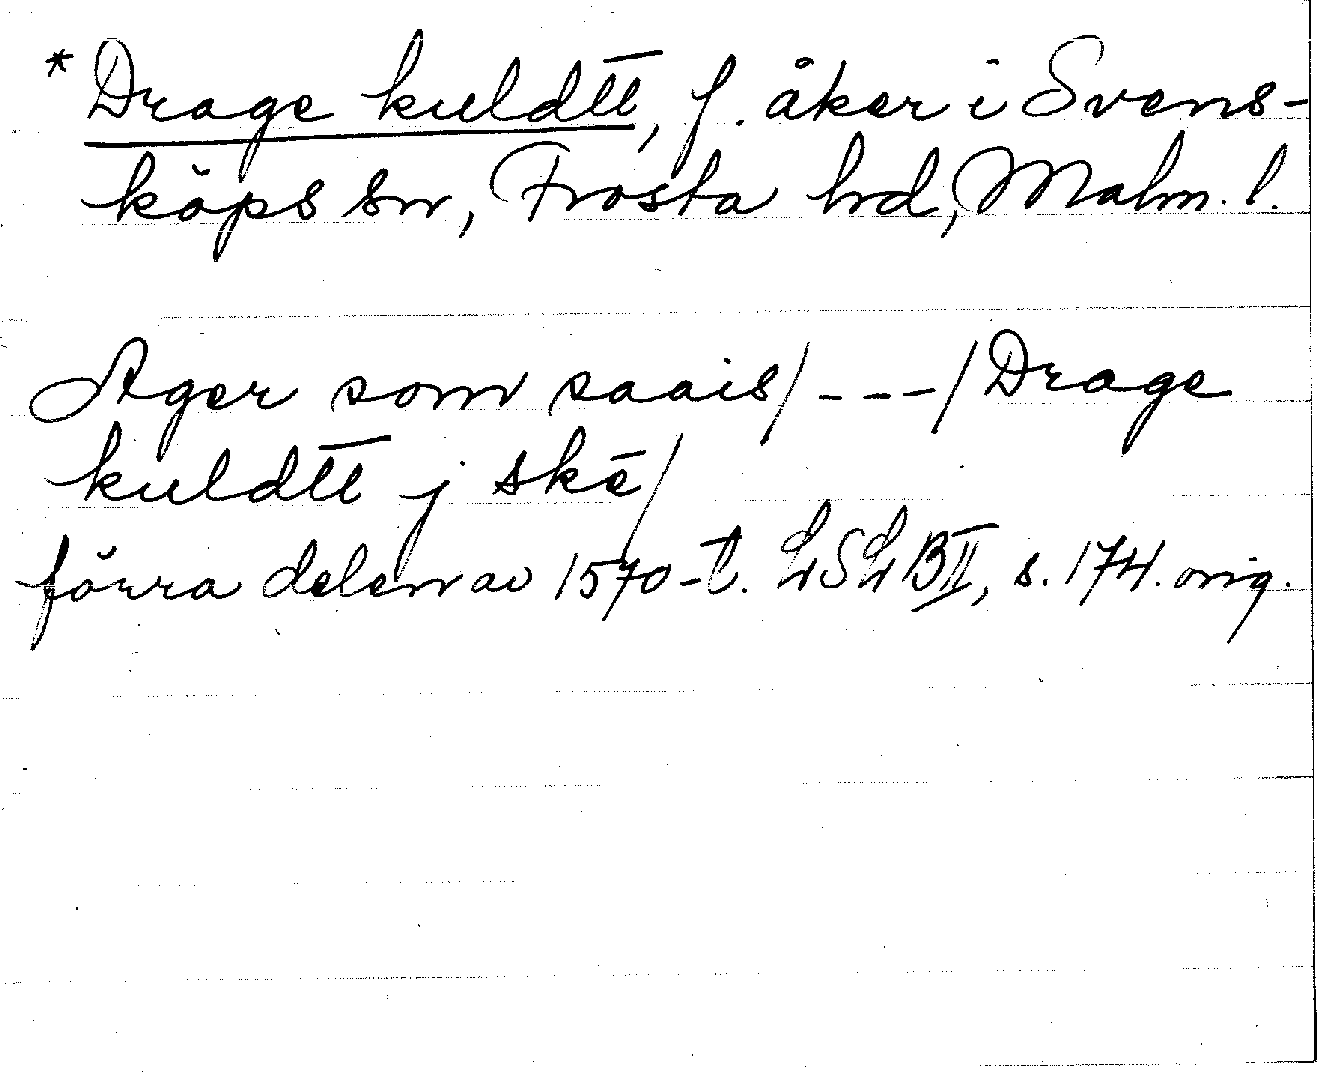 * Drage kuldtt̅, f. åker i Svens-
köps sn, Frosta hd, Malm. l.
Ager som saais/---/Drage
kuldtt̅ j skē/
förra delen av 1570-t. LSLB II, s. 174. orig.